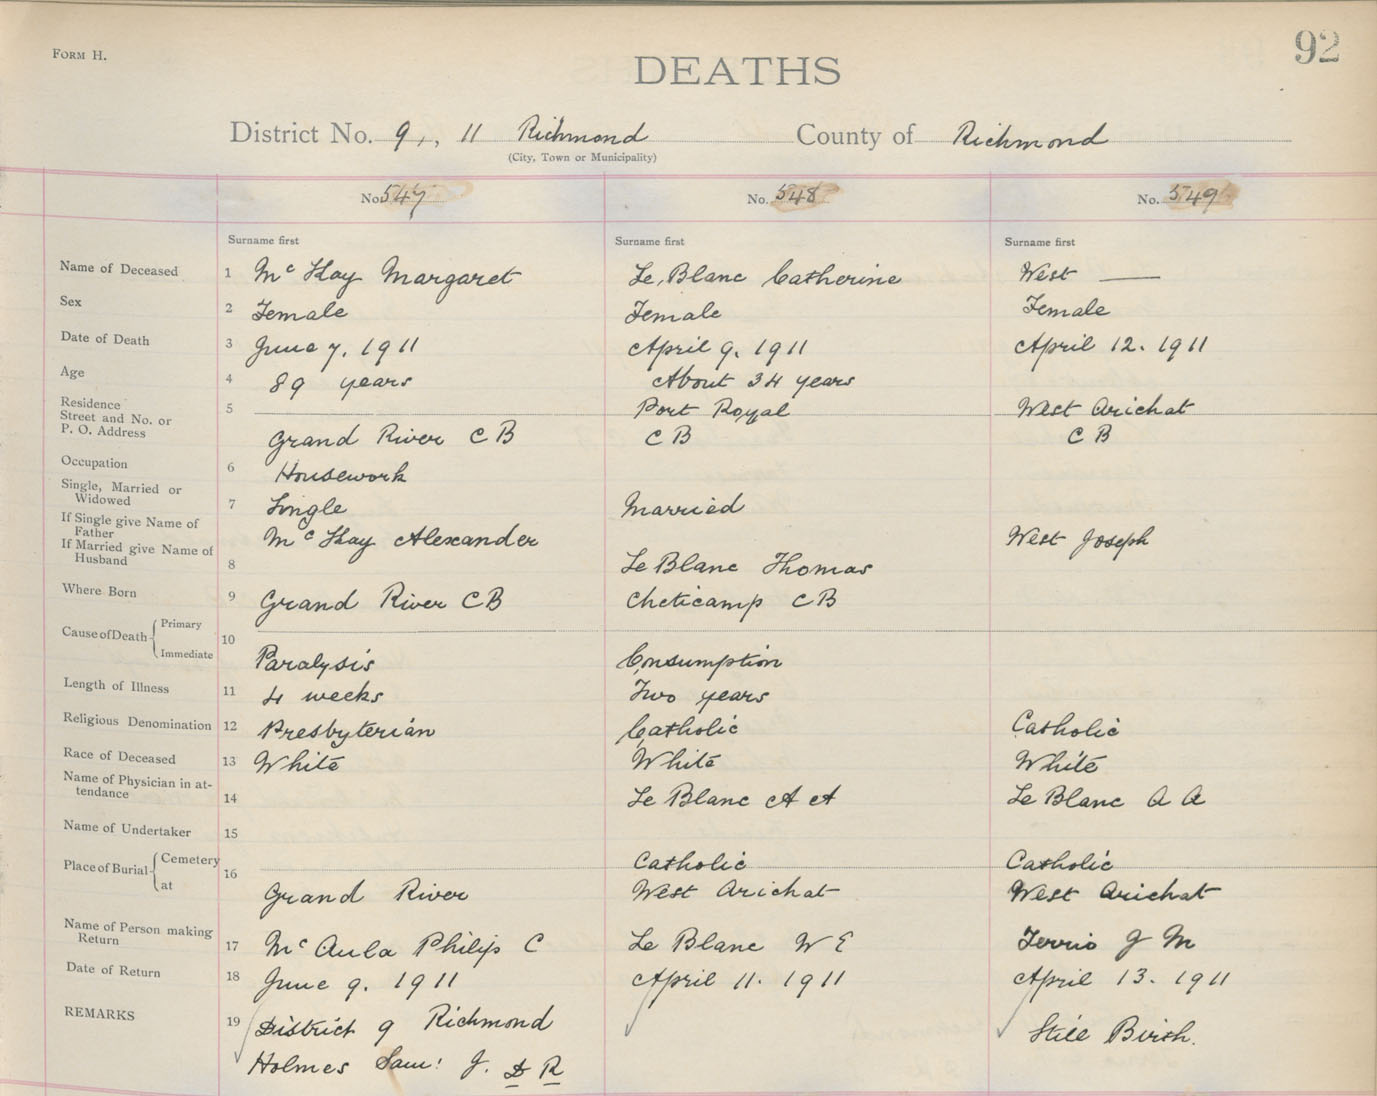 FORM H.
92
DEATHS
District No. 9,, 11 Richmond County of Richmond
(City, Town or Municipality)
No. 547 No. 548 No. 549
Surname first Surname first Surname first
Name of Deceased 1 Mc Kay Margaret Le Blanc Catherine West —
Sex 2 Female Female Female
Date of Death 3 June 7. 1911 April 9. 1911 April 12. 1911
Age 4 89 years About 34 years
Residence
Street and No. or 5 Port Royal West Arichat
P. O. Address Grand River C B C B C B
Occupation 6 Housework
Single, Married or
Widowed 7 Single Married
If Single give Name of
Father Mc Kay Alexander West Joseph
If Married give Name of
Husband 8 Le Blanc Thomas
Where Born 9 Grand River CB Cheticamp CB
Cause of Death Primary 10
Immediate Paralysis Consumption
Length of Illness 11 4 weeks Two years
Religious Denomination 12 Presbyterian Catholic Catholic
Race of Deceased 13 White White White
Name of Physician in at-
tendance 14 Le Blanc A A Le Blanc A A
Name of Undertaker 15
Place of Burial Cemetery 16 Catholic Catholic
at Grand River West Arichat West Arichat
Name of Person making
Return 17 Mc Aula Philip C Le Blanc W E Terrio J M
Date of Return 18 June 9. 1911 April 11. 1911 April 13. 1911
REMARKS 19 District 9 Richmond Still Birth.
Holmes Saml J. D R